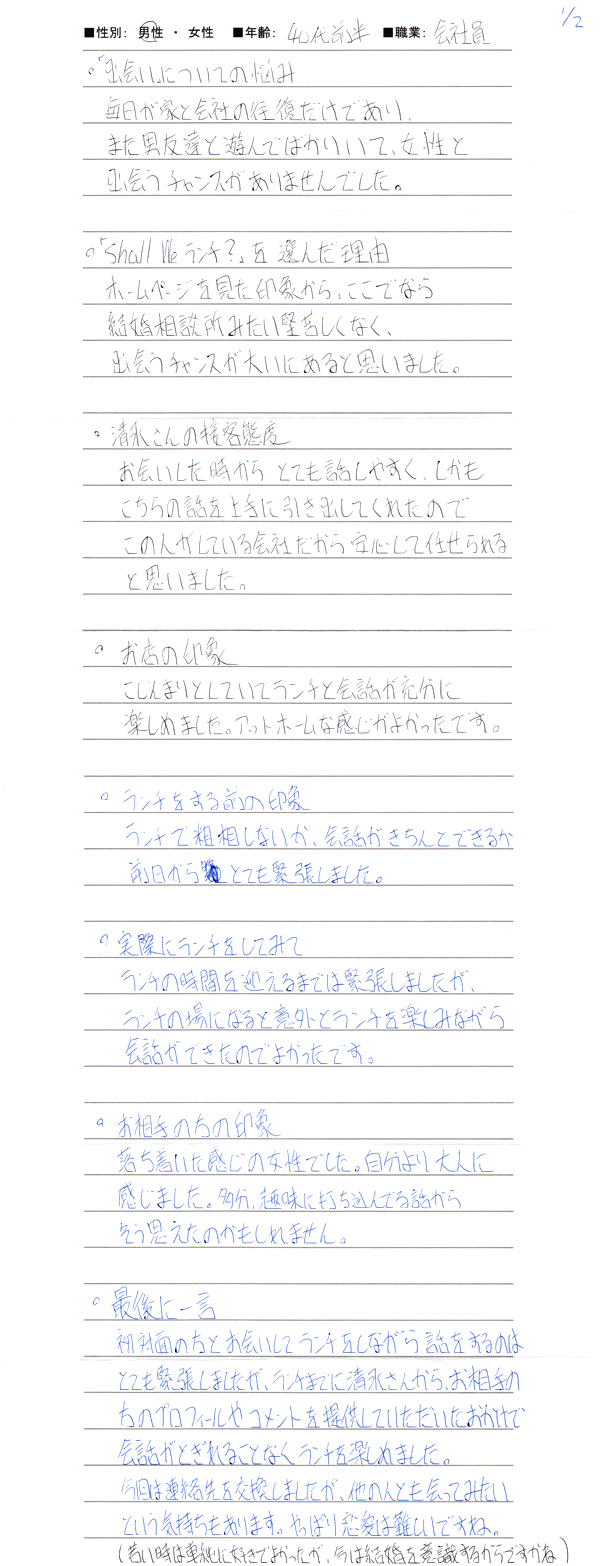 1/2
■性別: 男性 ・ 女性 ■年齢: 40代前半 ■職業: 会社員
。「出会い」についての悩み
毎日が家と会社の往復だけであり、
また男友達と遊んでばかりいて、女性と
出会うチャンスがありませんでした。
。「Shall We ランチ?」を選んだ理由
ホームページを見た印象から、ここでなら
結婚相談所みたい堅苦しくなく、
出会うチャンスが大いにあると思いました。
。清水さんの接客態度
お会いした時からとても話しやすく、しかも
こちらの話を上手に引き出してくれたので
この人がしている会社だから安心して任せられる
と思いました。
。お店の印象
こじんまりとしていてランチと会話が充分に
楽しめました。アットホームな感じがよかったです。
。ランチをする前の印象
ランチで粗相しないか、会話がきちんとできるか
前日からとても緊張しました。
。実際にランチをしてみて
ランチの時間を迎えるまでは緊張しましたが、
ランチの場になると意外とランチを楽しみながら
会話ができたのでよかったです。
。お相手の方の印象
落ち着いた感じの女性でした。自分より大人に
感じました。多分、趣味に打ち込んでる話から
そう思えたのかもしれません。
。最後に一言
初対面の方とお会いしてランチをしながら話をするのは
とても緊張しましたが、ランチまでに清水さんから、お相手の
方のプロフィールやコメントを提供していただいたおかげで
会話がとぎれることなくランチを楽しめました。
今回は連絡先を交換しましたが、他の人とも会ってみたい
という気持ちもあります。やっぱり恋愛は難しいですね。
(若い時は単純に好きでよかったが、今は結婚を意識するからですかね)